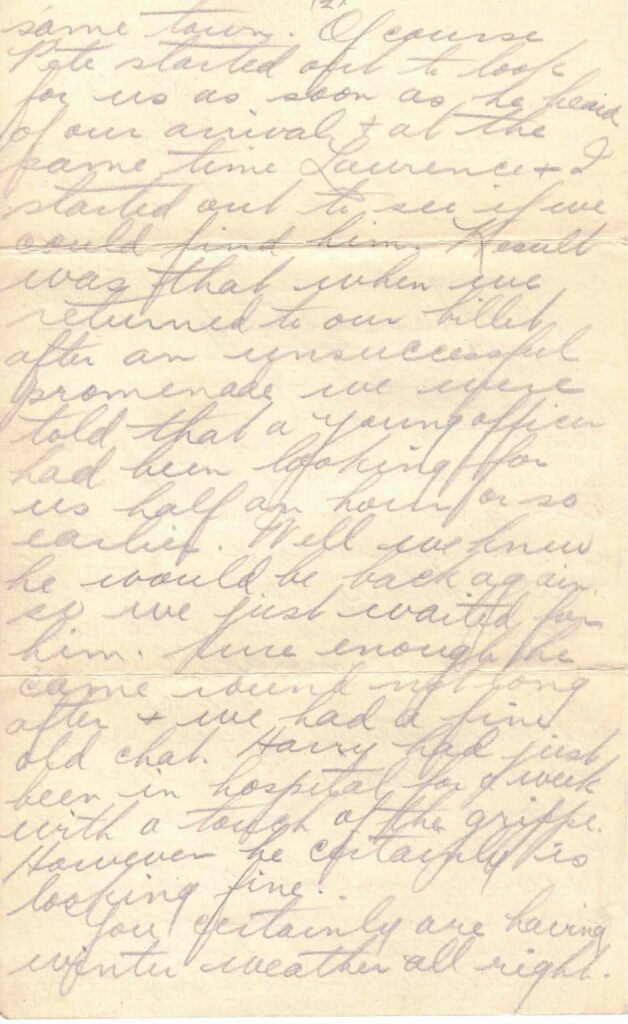 (2)
same town. Of course
Pete started out to look
for us as soon as he heard
of our arrival, & at the
same time Lawrence & I
started out to see if we
could find him. Result
was that when we
returned to our billet
after an unsuccessful
promenade we were
told that a young officer
had been looking for
us half an hour or so
earlier. Well we knew
he would be back again
so we just waited for
him. Sure enough he
came round not long
after & we had a fine
old chat. Harry had just
been in hospital for a week
with a touch of the grippe.
However he certainly is
looking fine.
You certainly are having
winter weather all right.